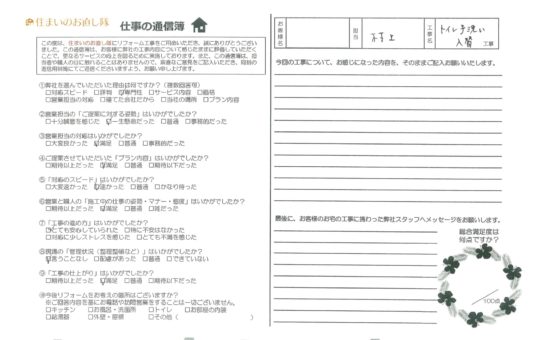 住まいのお直し隊
仕事の通信簿
この度は、住まいのお直し隊にリフォーム工事をご用命いただき、誠にありがとうござい
ました。この通信簿は、お客様に弊社の工事内容について感じたままに評価していただく
ことで、更なるサービスの向上を図るために実施しております。また、この通信簿は、担
当者や職人の目に触れることはありませんので、率直なご意見をご記入いただき、同封の
返信用封筒にてご返信くださいますよう、お願い申し上げます。
①弊社を選んでいただいた理由は何ですか?(複数回答可)
□対応スピード □評判 ☑専門性 □サービス内容 □価格
□営業担当の対応 □建てた会社だから □当社の職務 □プラン内容
②営業担当の「ご提案に対する姿勢」はいかがでしたか?
□十分誠意を感じた ☑一生懸命だった □普通 □事務的だった
③営業担当の対応はいかがでしたか?
□大変良かった ☑満足 □普通 □事務的だった
④ご提案させていただいた「プラン内容」はいかがでしたか?
□期待以上だった ☑満足 □普通 □期待以下だった
⑤「対応のスピード」はいかがでしたか?
□大変速かった ☑速かった □普通 □かなり待った
⑥営業と職人の「施工中の仕事の姿勢・マナー・態度」はいかがでしたか?
□期待以上だった ☑満足 □普通 □雑だった
⑦「工事の進め方」はいかがでしたか?
☑とても安心していられた □特に不安はなかった
□対応に少しストレスを感じた □とても不満を感じた
⑧現場の「管理状況(整理整頓など)」はいかがでしたか?
☑言うことなし □配慮があった □普通 □できていない
⑨「工事の仕上がり」はいかがでしたか?
□期待以上だった ☑満足 □普通 □期待以下だった
⑩今後リフォームをお考えの箇所はございますか?
※ご回答内容を基にお電話や訪問営業をすることは一切ございません。
□キッチン □お風呂・洗面所 □トイレ □お部屋の内装
□給湯器 □外壁・屋根 □その他( )
お客様名
担当
工事名
トイレ手洗い
入替
工事
今回の工事について、お感じになった内容を、そのままご記入お願いいたします。
最後に、お客様のお宅の工事に携わった弊社スタッフへメッセージをお願いします。
総合満足度は
何点ですか?
/100点